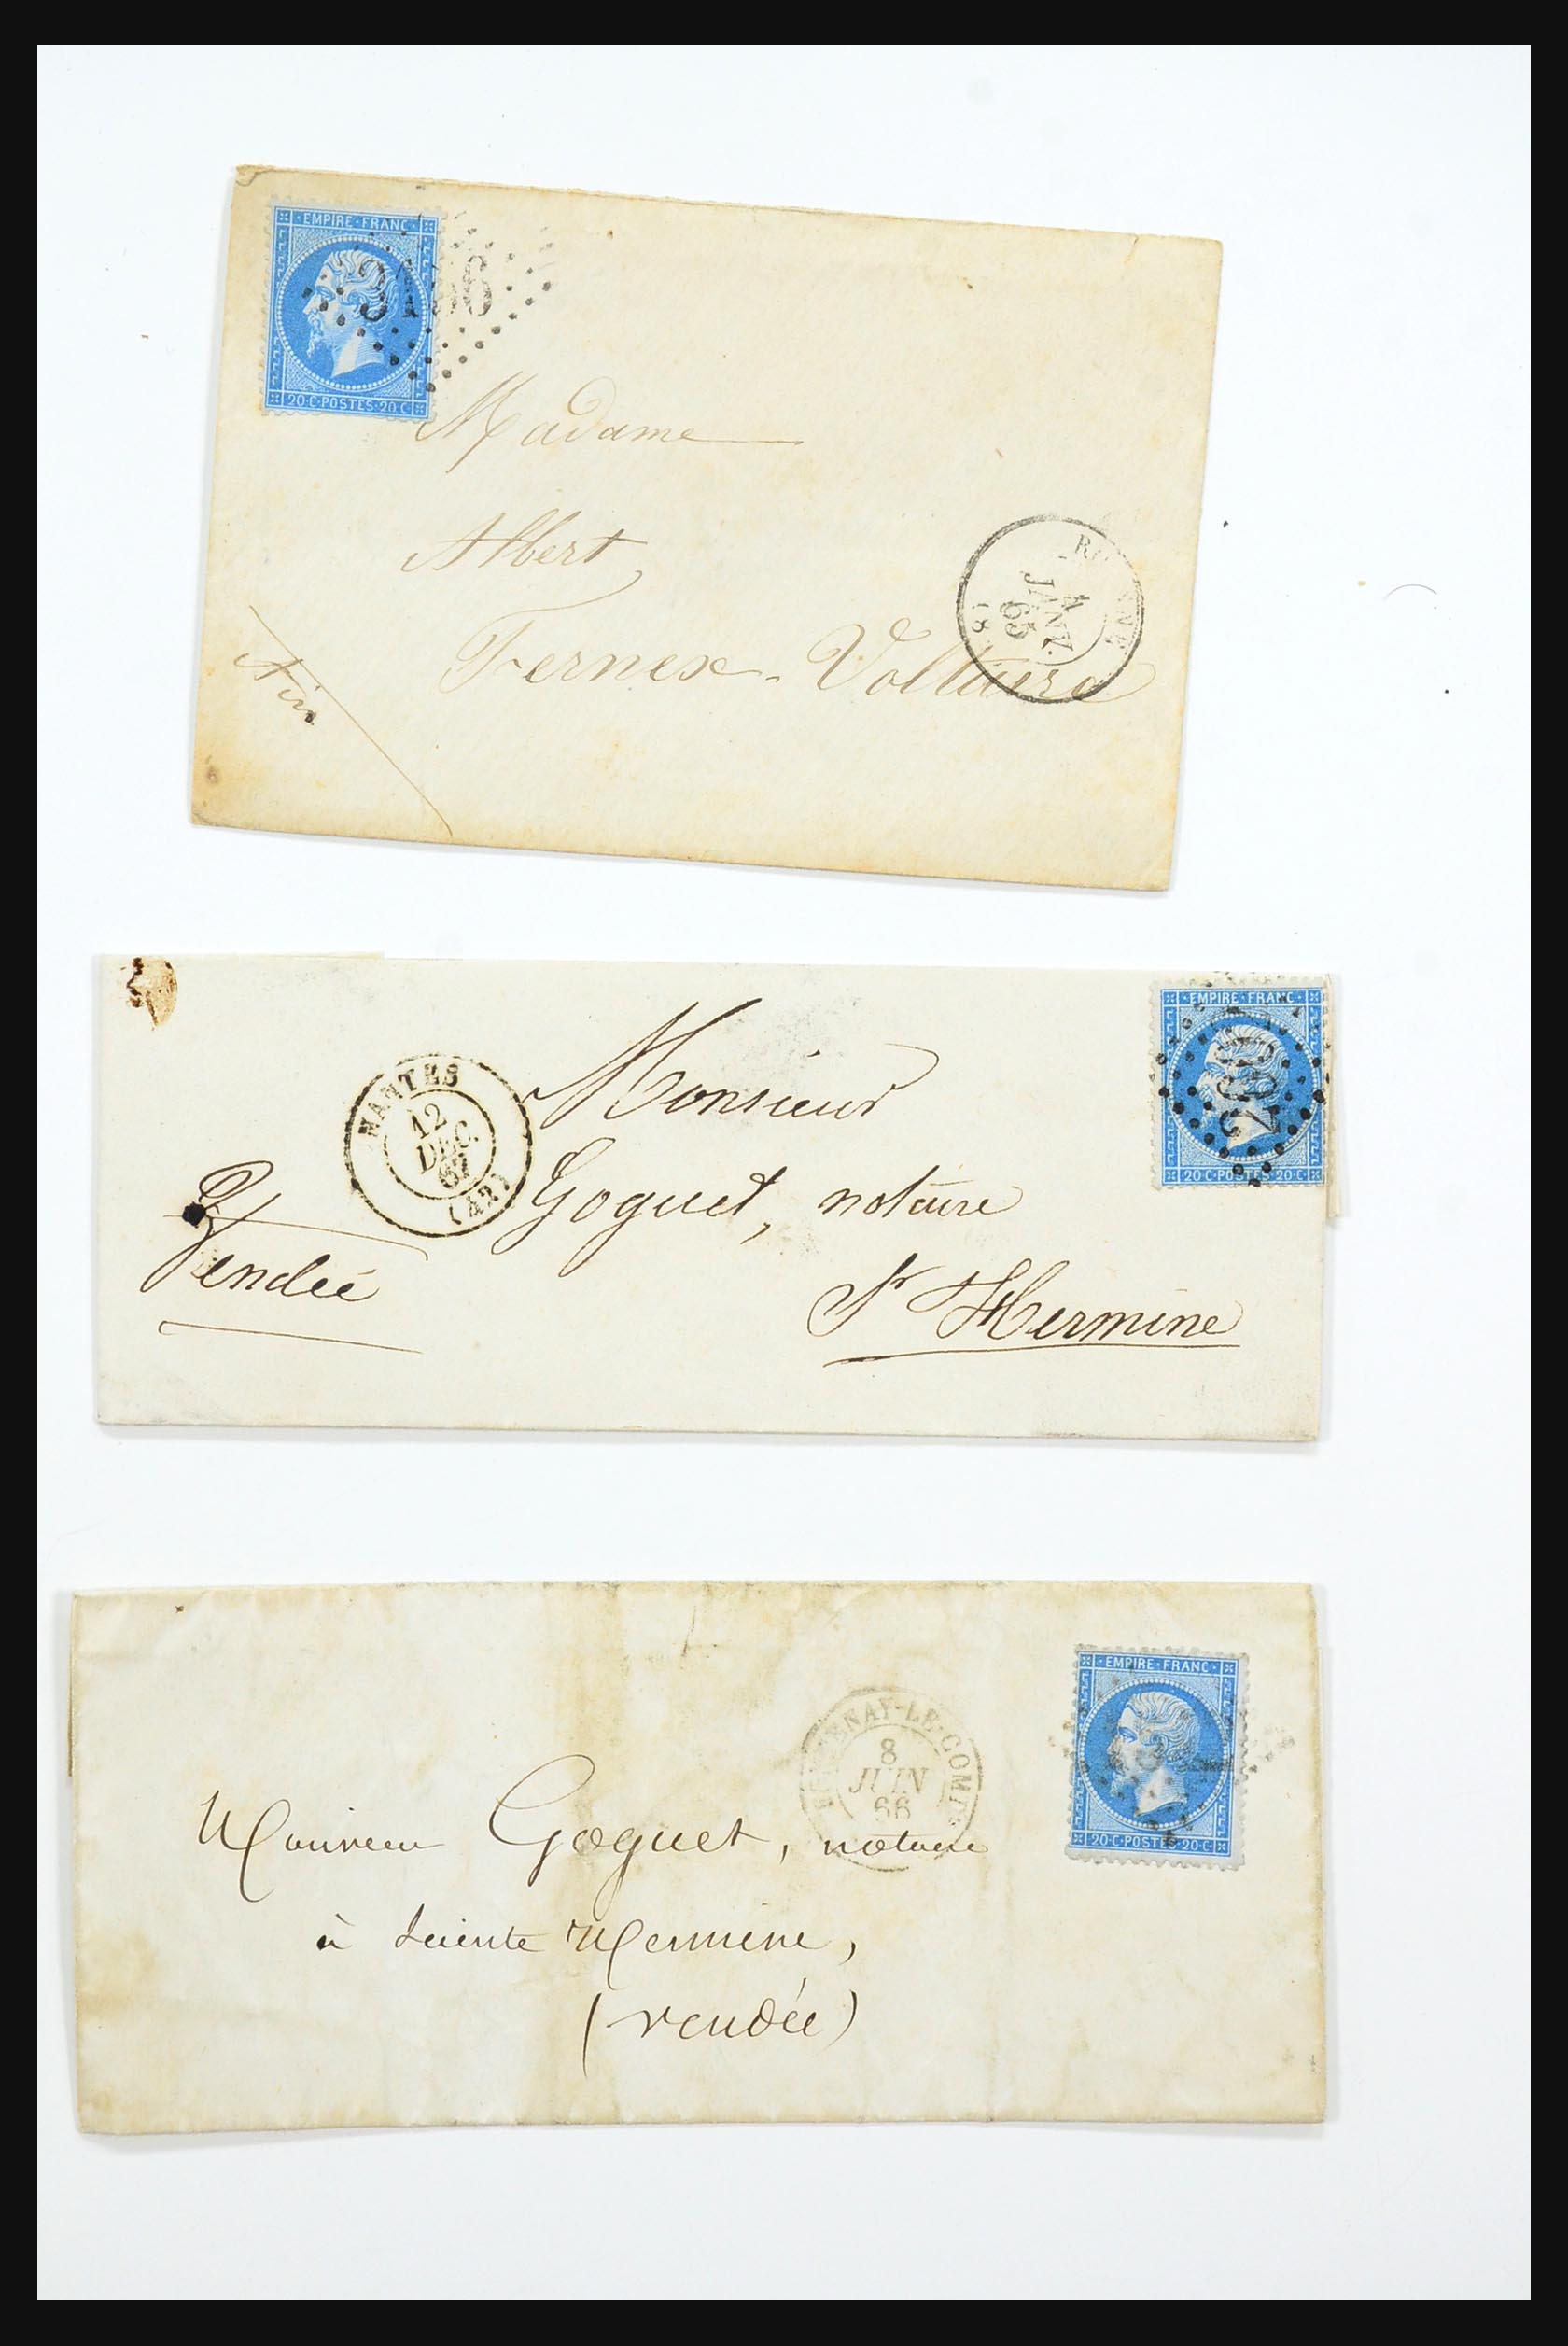 EMPIRE · FRANC
20 · C · POSTES · 20 · C
Madame
Albert
Fernex-Voltaire
Ain
4
JANV.
65
(8
EMPIRE · FRANC
2602
20 · C · POSTES · 20 · C
NANTES
12
DEC.
67
(42)
Monsieur
Goguet, notaire
St Hermine
Vendée
EMPIRE · FRANC
20 · C · POSTES · 20 · C
8
JUIN
66
Monsieur Goguet, notaire
à Sainte Hermine,
(vendée)